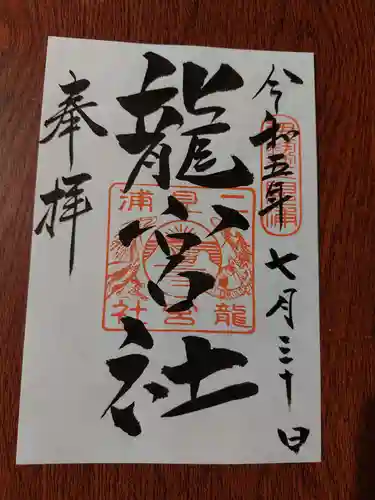 令和五年 七月三十日
龍宮社
奉拝
二見浦
龍宮社